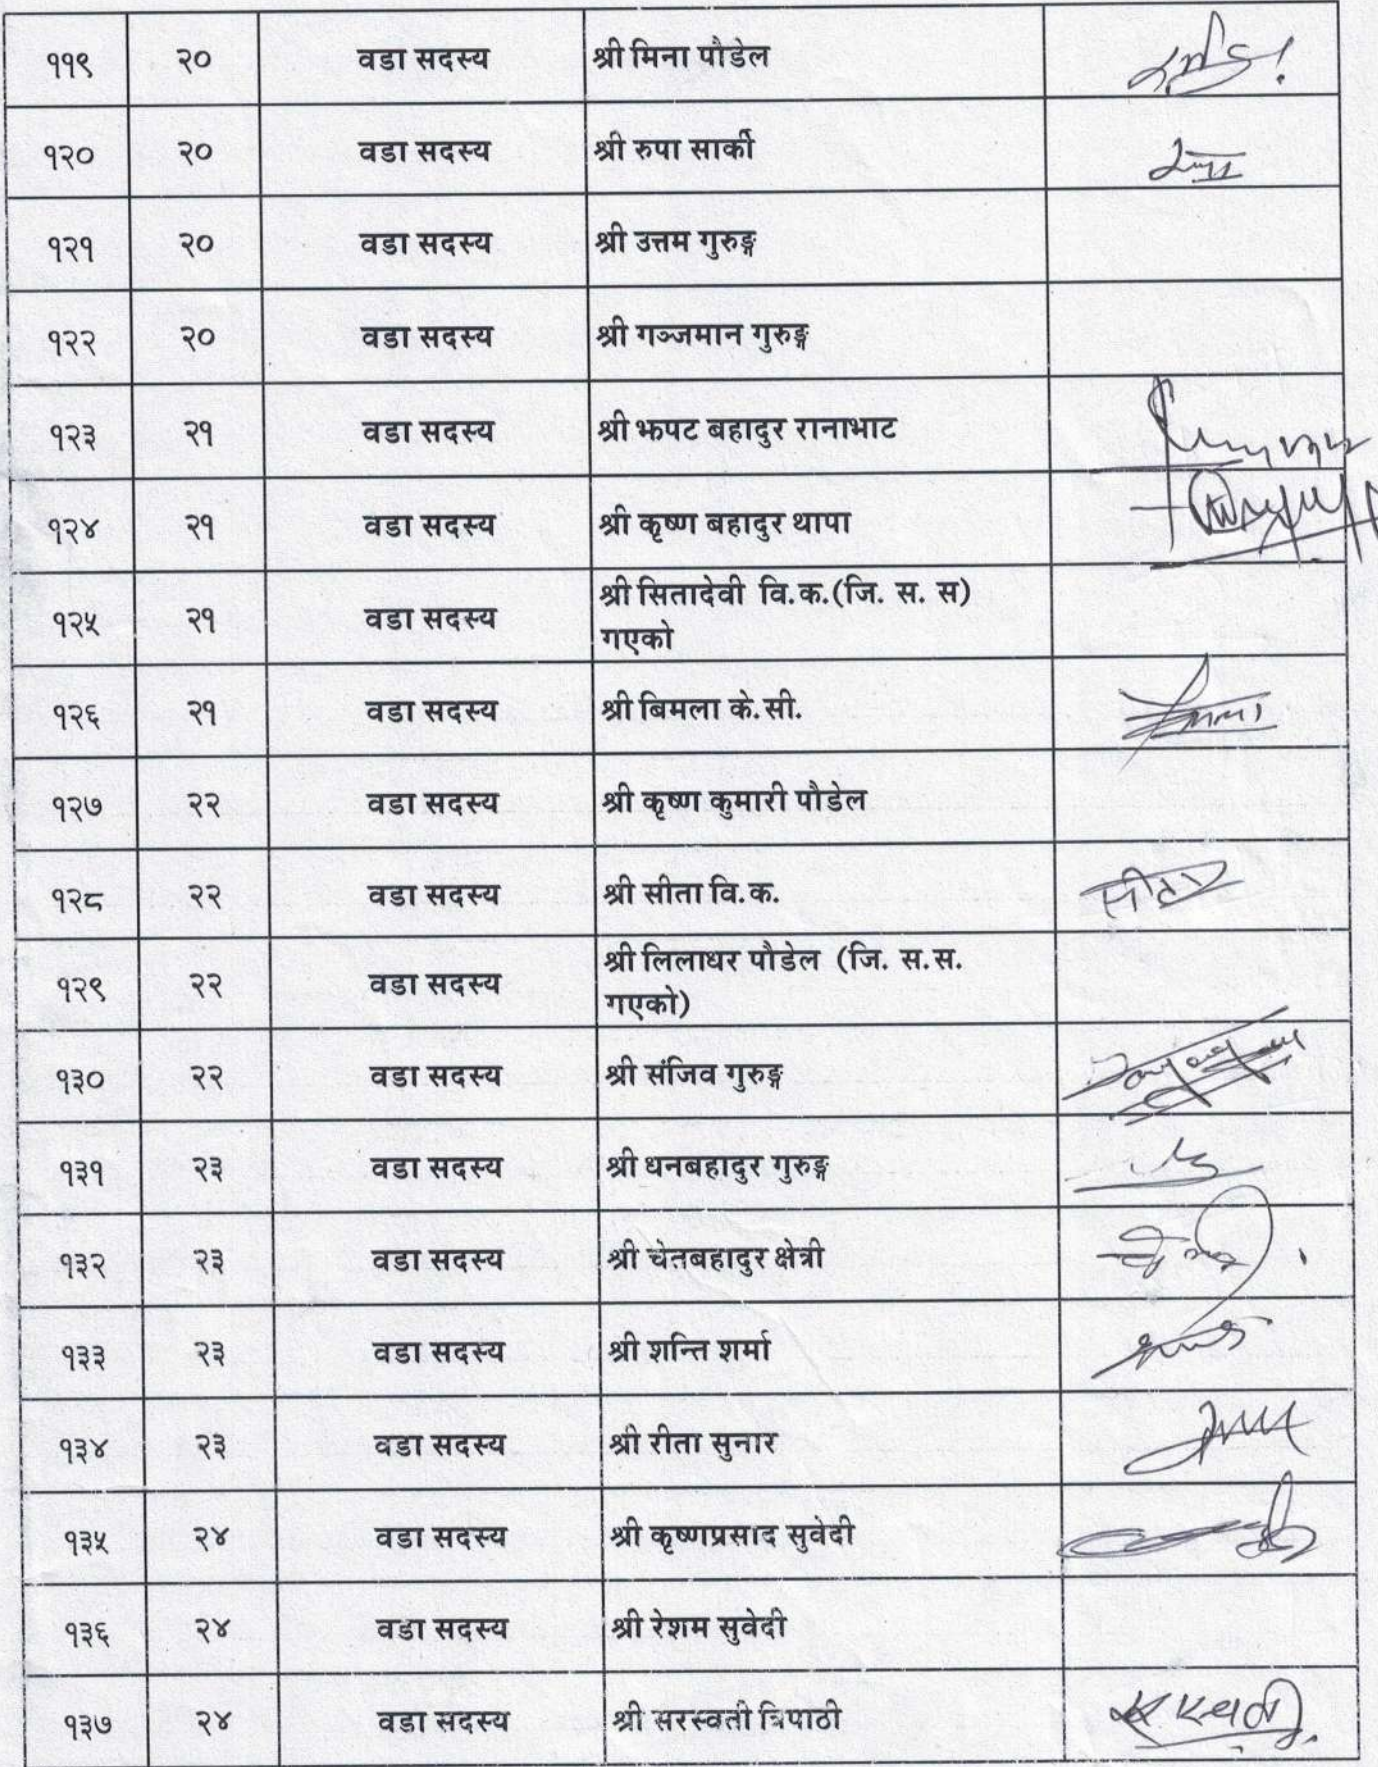 ११९ २० वडा सदस्य श्री मिना पौडेल
१२० २० वडा सदस्य श्री रुपा सार्की
१२१ २० वडा सदस्य श्री उत्तम गुरुङ्ग
१२२ २० वडा सदस्य श्री गञ्जमान गुरुङ्ग
१२३ २१ वडा सदस्य श्री झपट बहादुर रानाभाट
१२४ २१ वडा सदस्य श्री कृष्ण बहादुर थापा
१२५ २१ वडा सदस्य श्री सितादेवी वि.क.(जि. स. स)
गएको
१२६ २१ वडा सदस्य श्री बिमला के.सी.
१२७ २२ वडा सदस्य श्री कृष्ण कुमारी पौडेल
१२८ २२ वडा सदस्य श्री सीता वि.क. सीता
१२९ २२ वडा सदस्य श्री लिलाधर पौडेल (जि. स.स.
गएको)
१३० २२ वडा सदस्य श्री संजिव गुरुङ्ग
१३१ २३ वडा सदस्य श्री धनबहादुर गुरुङ्ग
१३२ २३ वडा सदस्य श्री चेतबहादुर क्षेत्री
१३३ २३ वडा सदस्य श्री शन्ति शर्मा
१३४ २३ वडा सदस्य श्री रीता सुनार
१३५ २४ वडा सदस्य श्री कृष्णप्रसाद सुवेदी
१३६ २४ वडा सदस्य श्री रेशम सुवेदी
१३७ २४ वडा सदस्य श्री सरस्वती त्रिपाठी